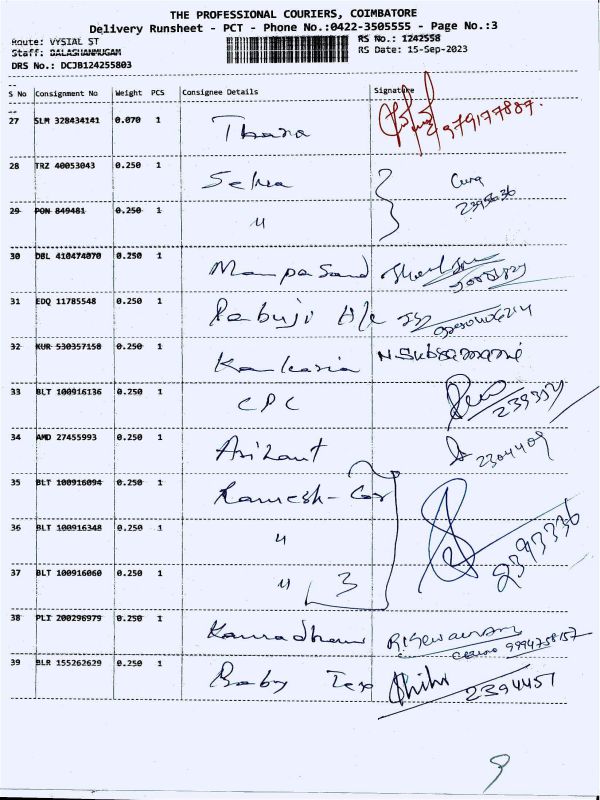 THE PROFESSIONAL COURIERS, COIMBATORE
Delivery Runsheet - PCT - Phone No.:0422-3505555 - Page No.:3
Route: VYSIAL ST
RS No.: 1242558
Staff: BALASHANMUGAM
RS Date: 15-Sep-2023
DRS No.: DCJB124255803
S No Consignment No Weight PCS Consignee Details Signature
27 SLM 328434141 0.070 1 Thara
28 TRZ 40053043 0.250 1
29 PON 849481 0.250 1 "
30 DBL 410474070 0.250 1
31 EDQ 11785548 0.250 1
32 KUR 530357158 0.250 1 N.Subramani
33 BLT 100916136 0.250 1 CPC
34 AMD 27455993 0.250 1 Arihant 2304409
35 BLT 100916094 0.250 1 Ramesh-
36 BLT 100916348 0.250 1 " 2393336
37 BLT 100916060 0.250 1 " 3
38 PLI 200296979 0.250 1 9994758157
39 BLR 155262629 0.250 1 Baby Tex 2394457